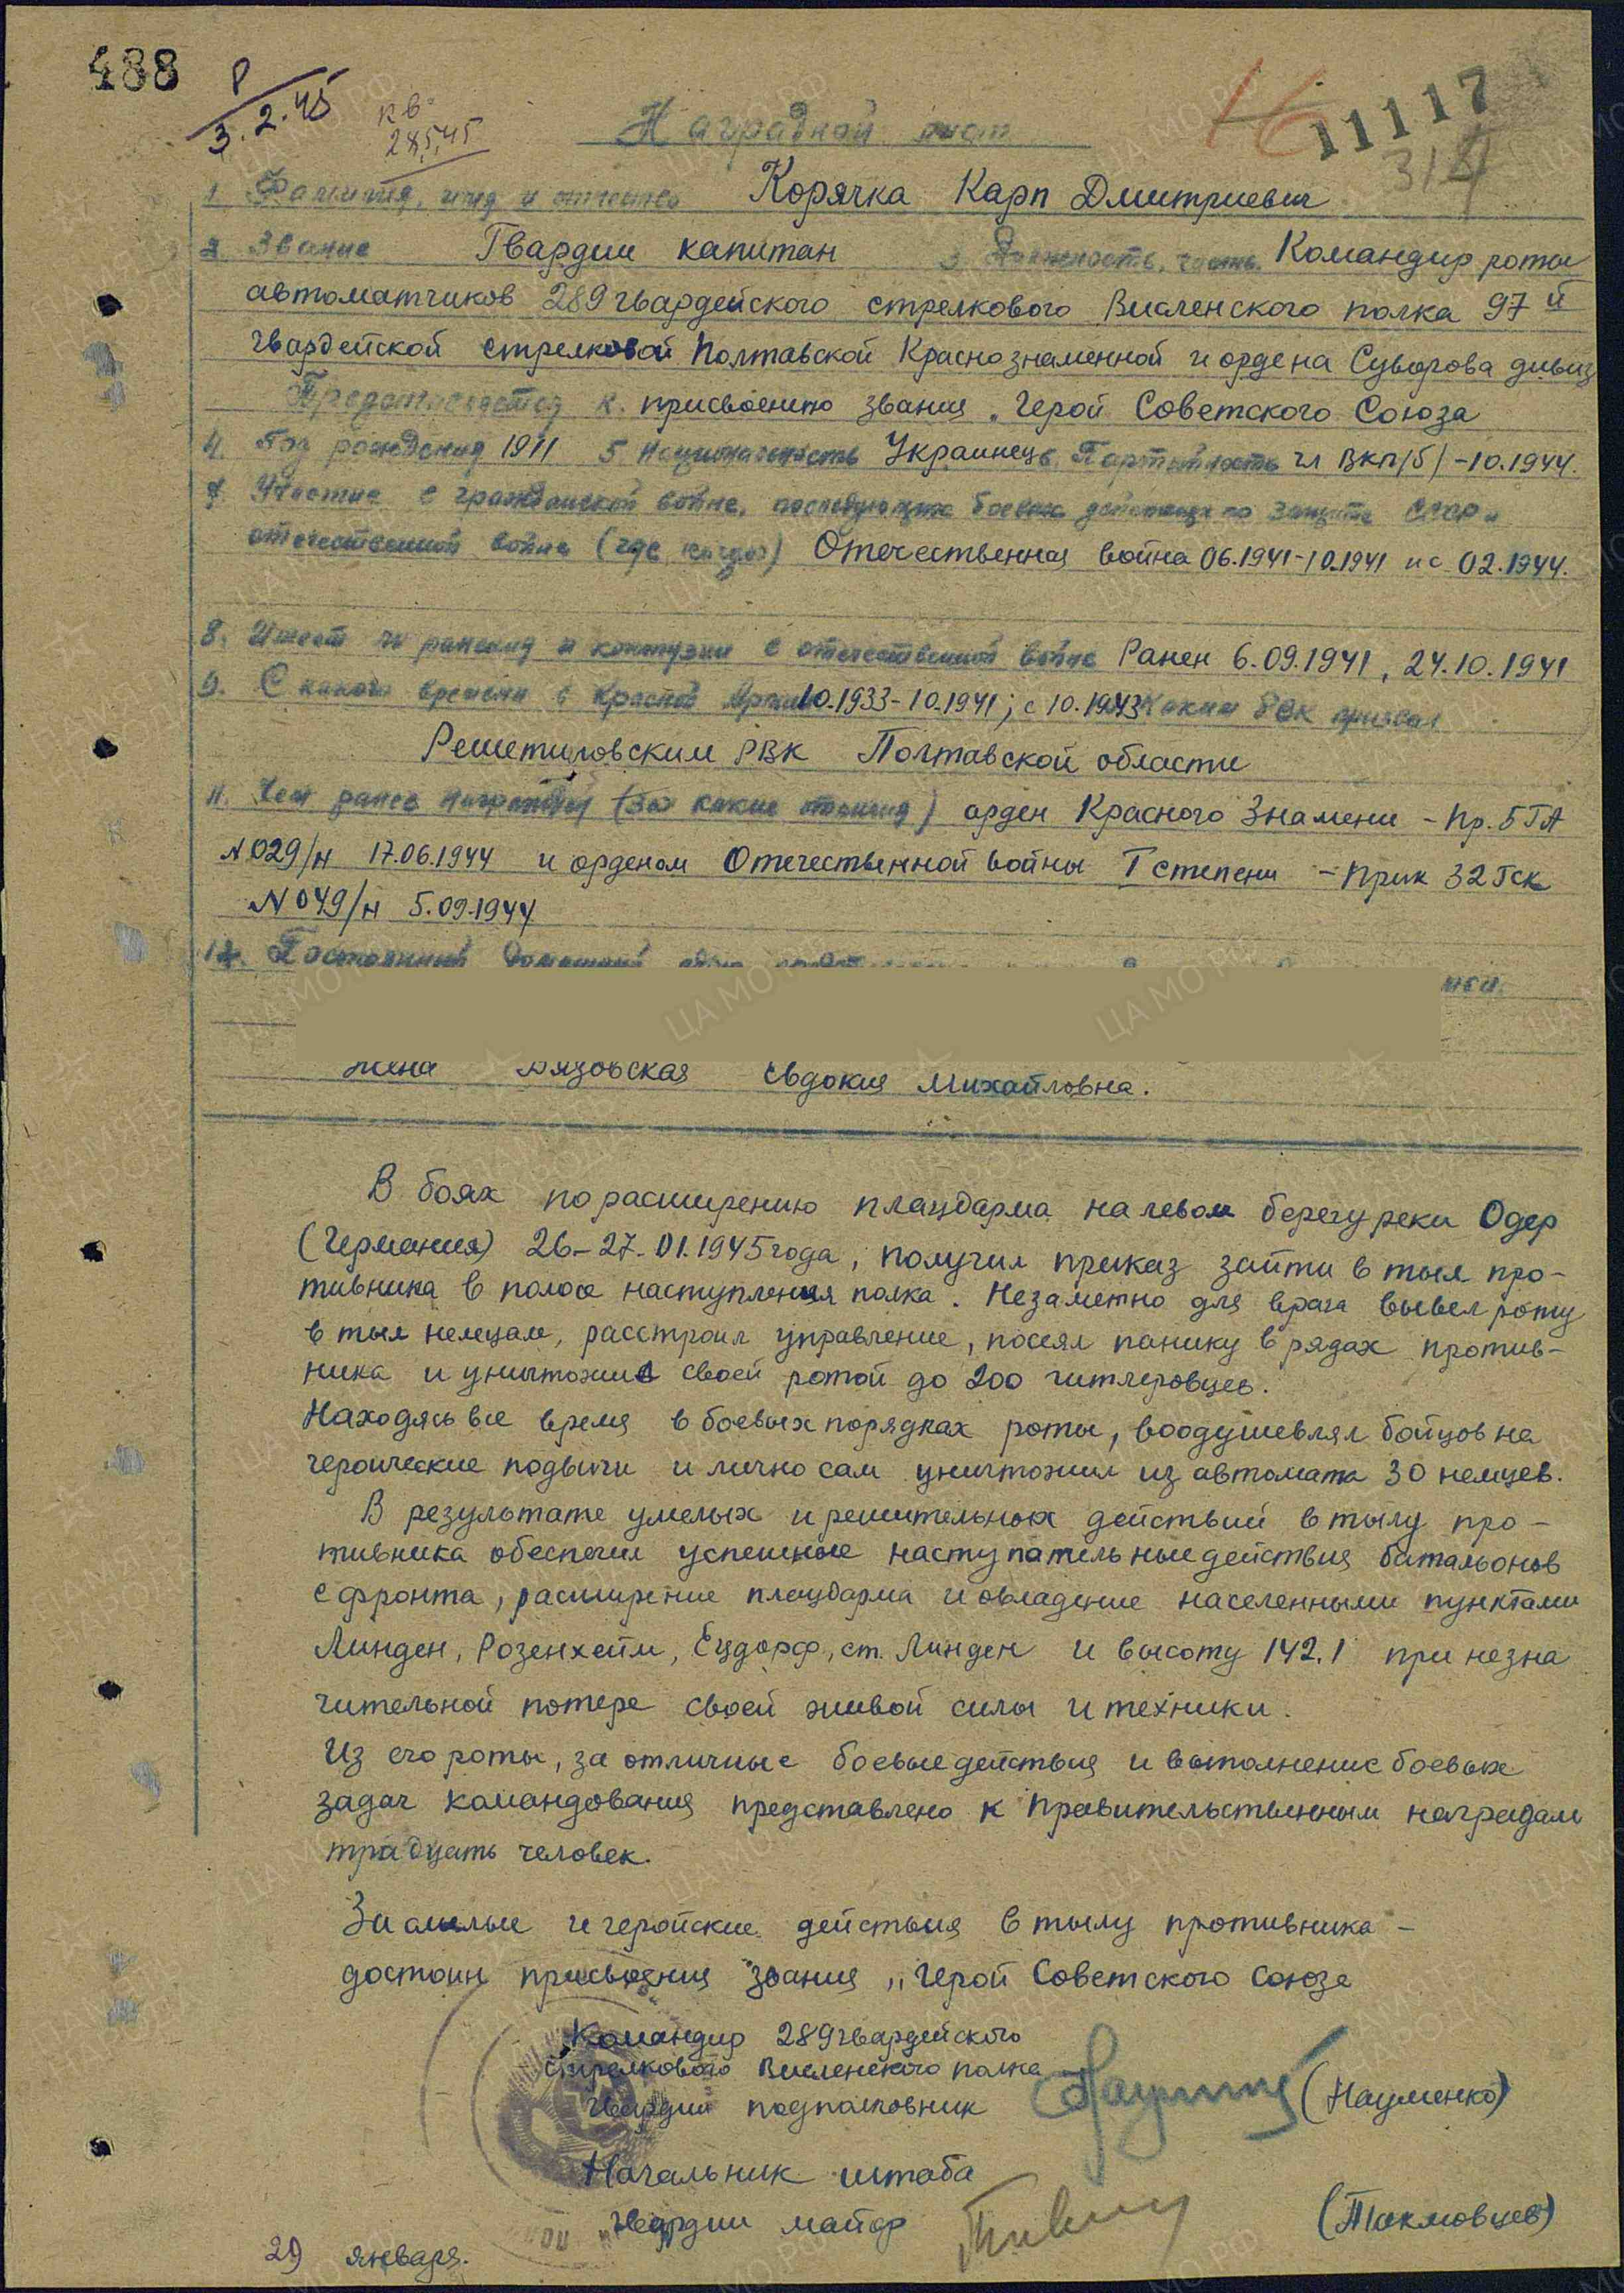 488
Р
3.2.45
кв
28.5.45
Наградной лист
16
11117
314
1. Фамилия, имя и отчество Корячка Карп Дмитриевич
2. Звание Гвардии капитан 3. Должность, часть Командир роты
автоматчиков 289 гвардейского стрелкового Висленского полка 97й
гвардейской стрелковой Полтавской Краснознаменной и ордена Суворова дивиз
Представляется к присвоению звания „Герой Советского Союза
4. Год рождения 1911 5. Национальность Украинец 6. Партийность чл ВКП/б/ -10.1944.
7. Участие в гражданской войне, последующих боевых действиях по защите СССР и
отечественной войне (где, когда) Отечественная война 06.1941-10.1941 и с 02.1944.
8. Имеет ли ранения и контузии в отечественной войне Ранен 6.09.1941, 24.10.1941
9. С какого времени в Красной Армии 10.1933-10.1941; с 10.1943 Каким РВК призван
Решетиловским РВК Полтавской области
11. Чем ранее награжден (за какие отличия) орден Красного Знамени - Пр. 5 ГА
N 029/н 17.06.1944 и орденом Отечественной войны I степени - Прик 32 Гск
N 049/н 5.09.1944
12. Постоянный домашний
жена Вязовская Евдокия Михайловна.
В боях по расширению плацдарма на левом берегу реки Одер
(Германия) 26-27.01.1945 года, получил приказ зайти в тыл про-
тивника в полосе наступления полка. Незаметно для врага вывел роту
в тыл немцам, расстроил управление, посеял панику в рядах против-
ника и уничтожил своей ротой до 200 гитлеровцев.
Находясь все время в боевых порядках роты, воодушевлял бойцов на
героические подвиги и лично сам уничтожил из автомата 30 немцев.
В результате умелых и решительных действий в тылу про-
тивника обеспечил успешные наступательные действия батальонов
с фронта, расширение плацдарма и овладение населенными пунктами
Линден, Розенхейм, Ецдорф, ст. Линден и высоту 142.1 при незна
чительной потере своей живой силы и техники.
Из его роты, за отличные боевые действия и выполнение боевых
задач командования представлено к правительственным наградам
традцать человек.
За смелые и геройские действия в тылу противника -
достоин присвоения звания „Герой Советского Союза
Командир 289 гвардейского
стрелкового Висленского полка
Гвардии подполковник (Науменко)
Начальник штаба
Гвардии майор (Токмовцев)
29 января.